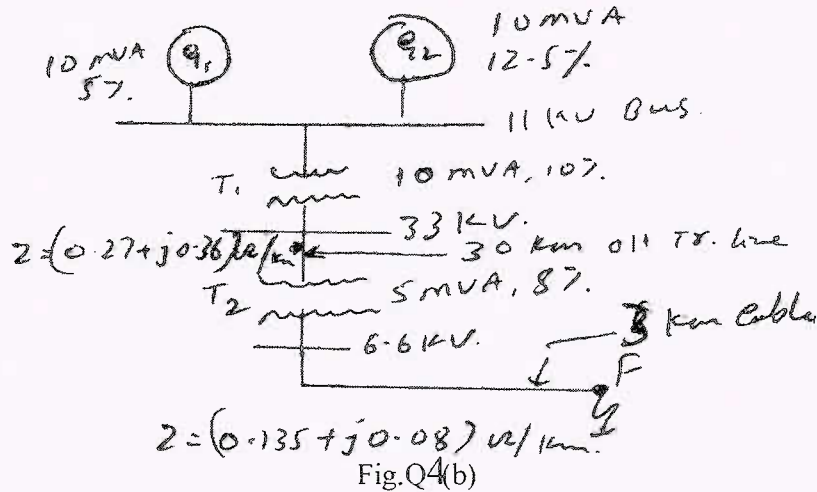 10 MVA
5%.
G1
G2
10 MVA
12.5%.
11 KV Bus.
T1
10 MVA, 10%.
33 KV.
Z=(0.27+j0.36)Ω/km
30 km OH Tr. line
T2
5 MVA, 8%.
6.6 KV.
km Cable
F
Z=(0.135+j0.08) Ω/km.
Fig.Q4(b)